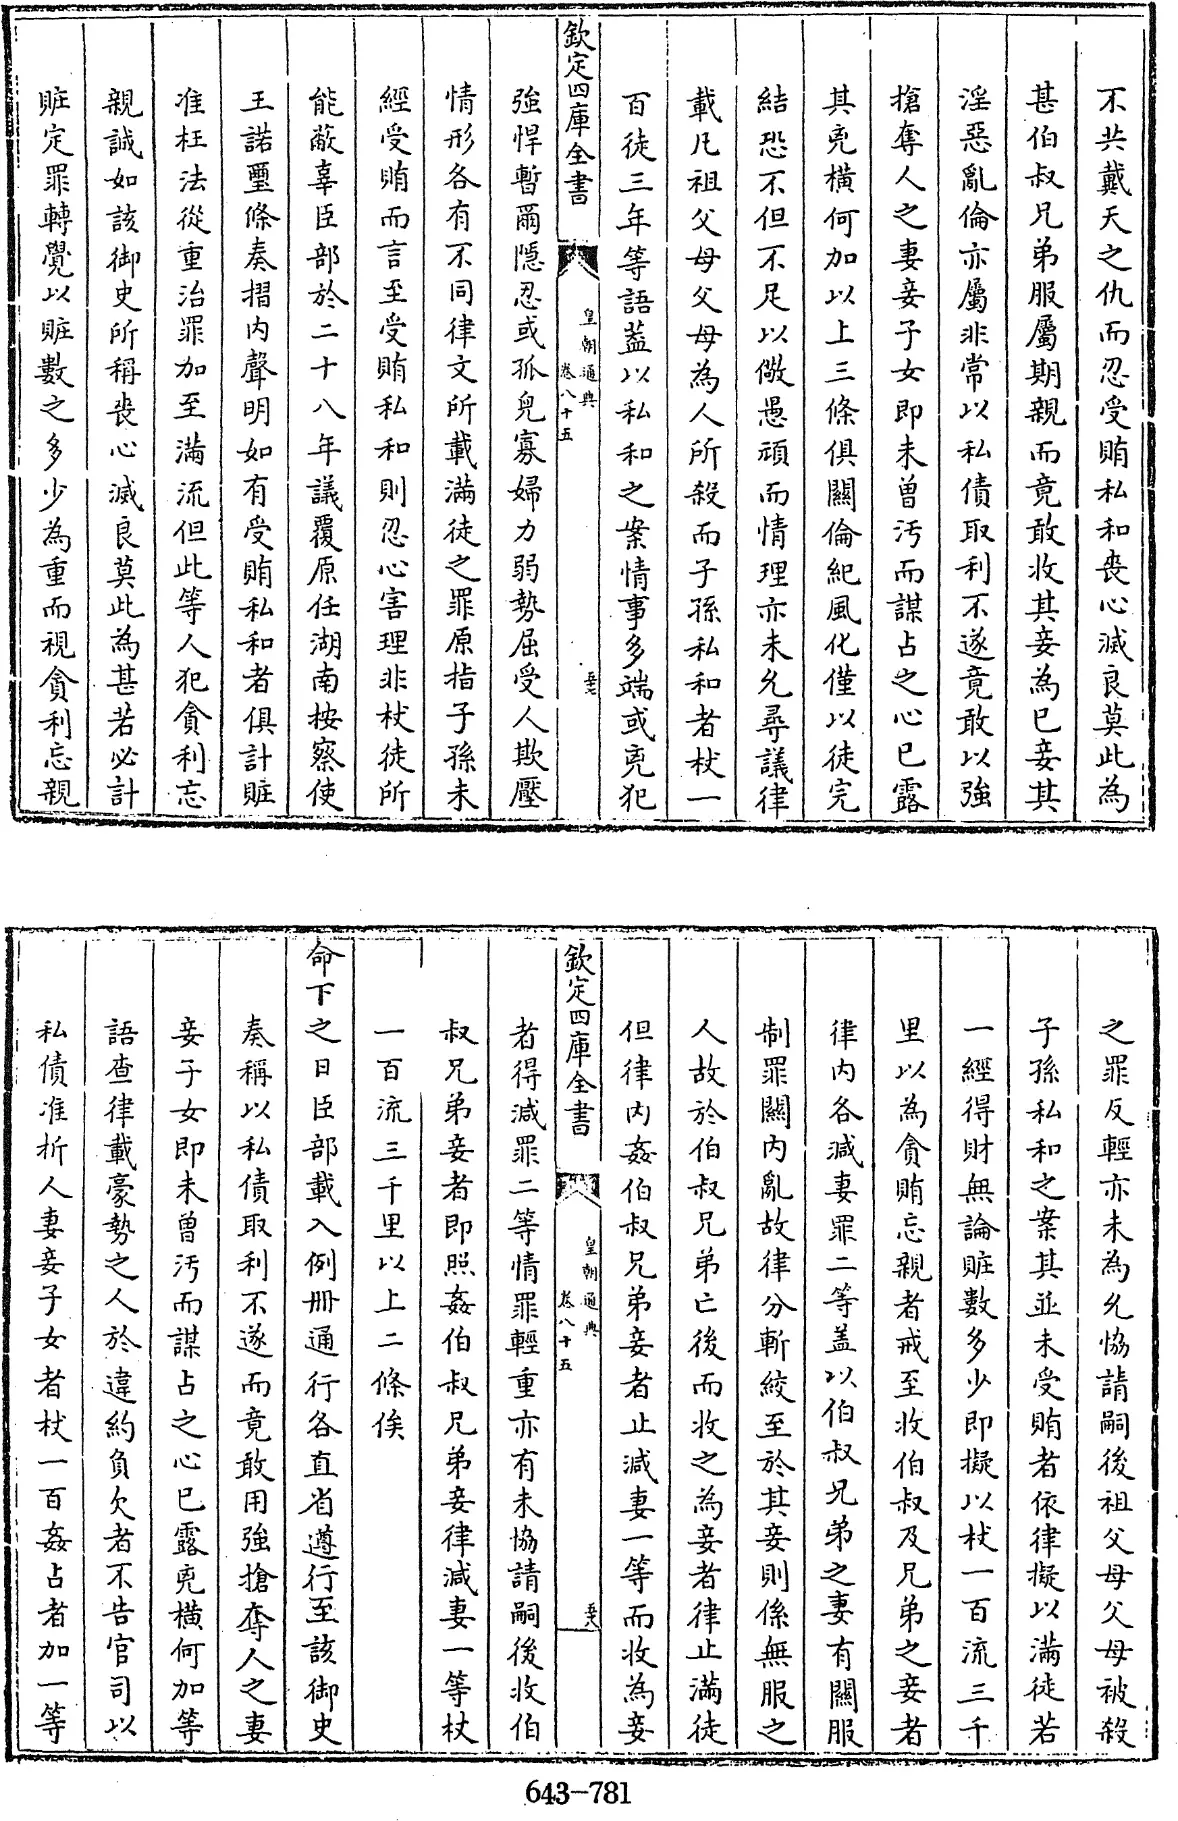 不共戴天之仇而忍受賄私和喪心滅良莫此為
甚伯叔兄弟服屬期親而竟敢收其妾為已妾其
淫惡亂倫亦屬非常以私債取利不遂竟敢以強
搶奪人之妻妾子女即未曾汚而謀占之心已露
其兇橫何加以上三條俱關倫紀風化僅以徒完
結恐不但不足以儆愚頑而情理亦未允尋議律
載凡祖父母父母為人所殺而子孫私和者杖一
百徒三年等語葢以私和之案情事多端或兇犯
欽定四庫全書
皇朝通典
卷八十五
強悍暫爾隱忍或孤兒寡婦力弱勢屈受人欺壓
情形各有不同律文所載滿徒之罪原指子孫未
經受賄而言至受賄私和則忍心害理非杖徒所
能蔽辜臣部於二十八年議覆原任湖南按察使
王諾璽條奏摺内聲明如有受賄私和者俱計贓
准枉法從重治罪加至滿流但此等人犯貪利忘
親誠如該御史所稱喪心滅良莫此為甚若必計
贓定罪轉覺以贓數之多少為重而視貪利忘親
之罪反輕亦未為允恊請嗣後祖父母父母被殺
子孫私和之案其並未受賄者依律擬以滿徒若
一經得財無論贓數多少即擬以杖一百流三千
里以為貪賄忘親者戒至收伯叔及兄弟之妾者
律内各減妻罪二等盖以伯叔兄弟之妻有關服
制罪關内亂故律分斬絞至於其妾則係無服之
人故於伯叔兄弟亡後而收之為妾者律止滿徒
但律内姦伯叔兄弟妾者止減妻一等而收為妾
欽定四庫全書
皇朝通典
卷八十五
者得減罪二等情罪輕重亦有未恊請嗣後收伯
叔兄弟妾者即照姦伯叔兄弟妾律減妻一等杖
一百流三千里以上二條俟
命下之日臣部載入例冊通行各直省遵行至該御史
奏稱以私債取利不遂而竟敢用強搶奪人之妻
妾子女即未曾汚而謀占之心已露兇橫何加等
語查律載豪勢之人於違約負欠者不告官司以
私債准折人妻妾子女者杖一百姦占者加一等
643-781